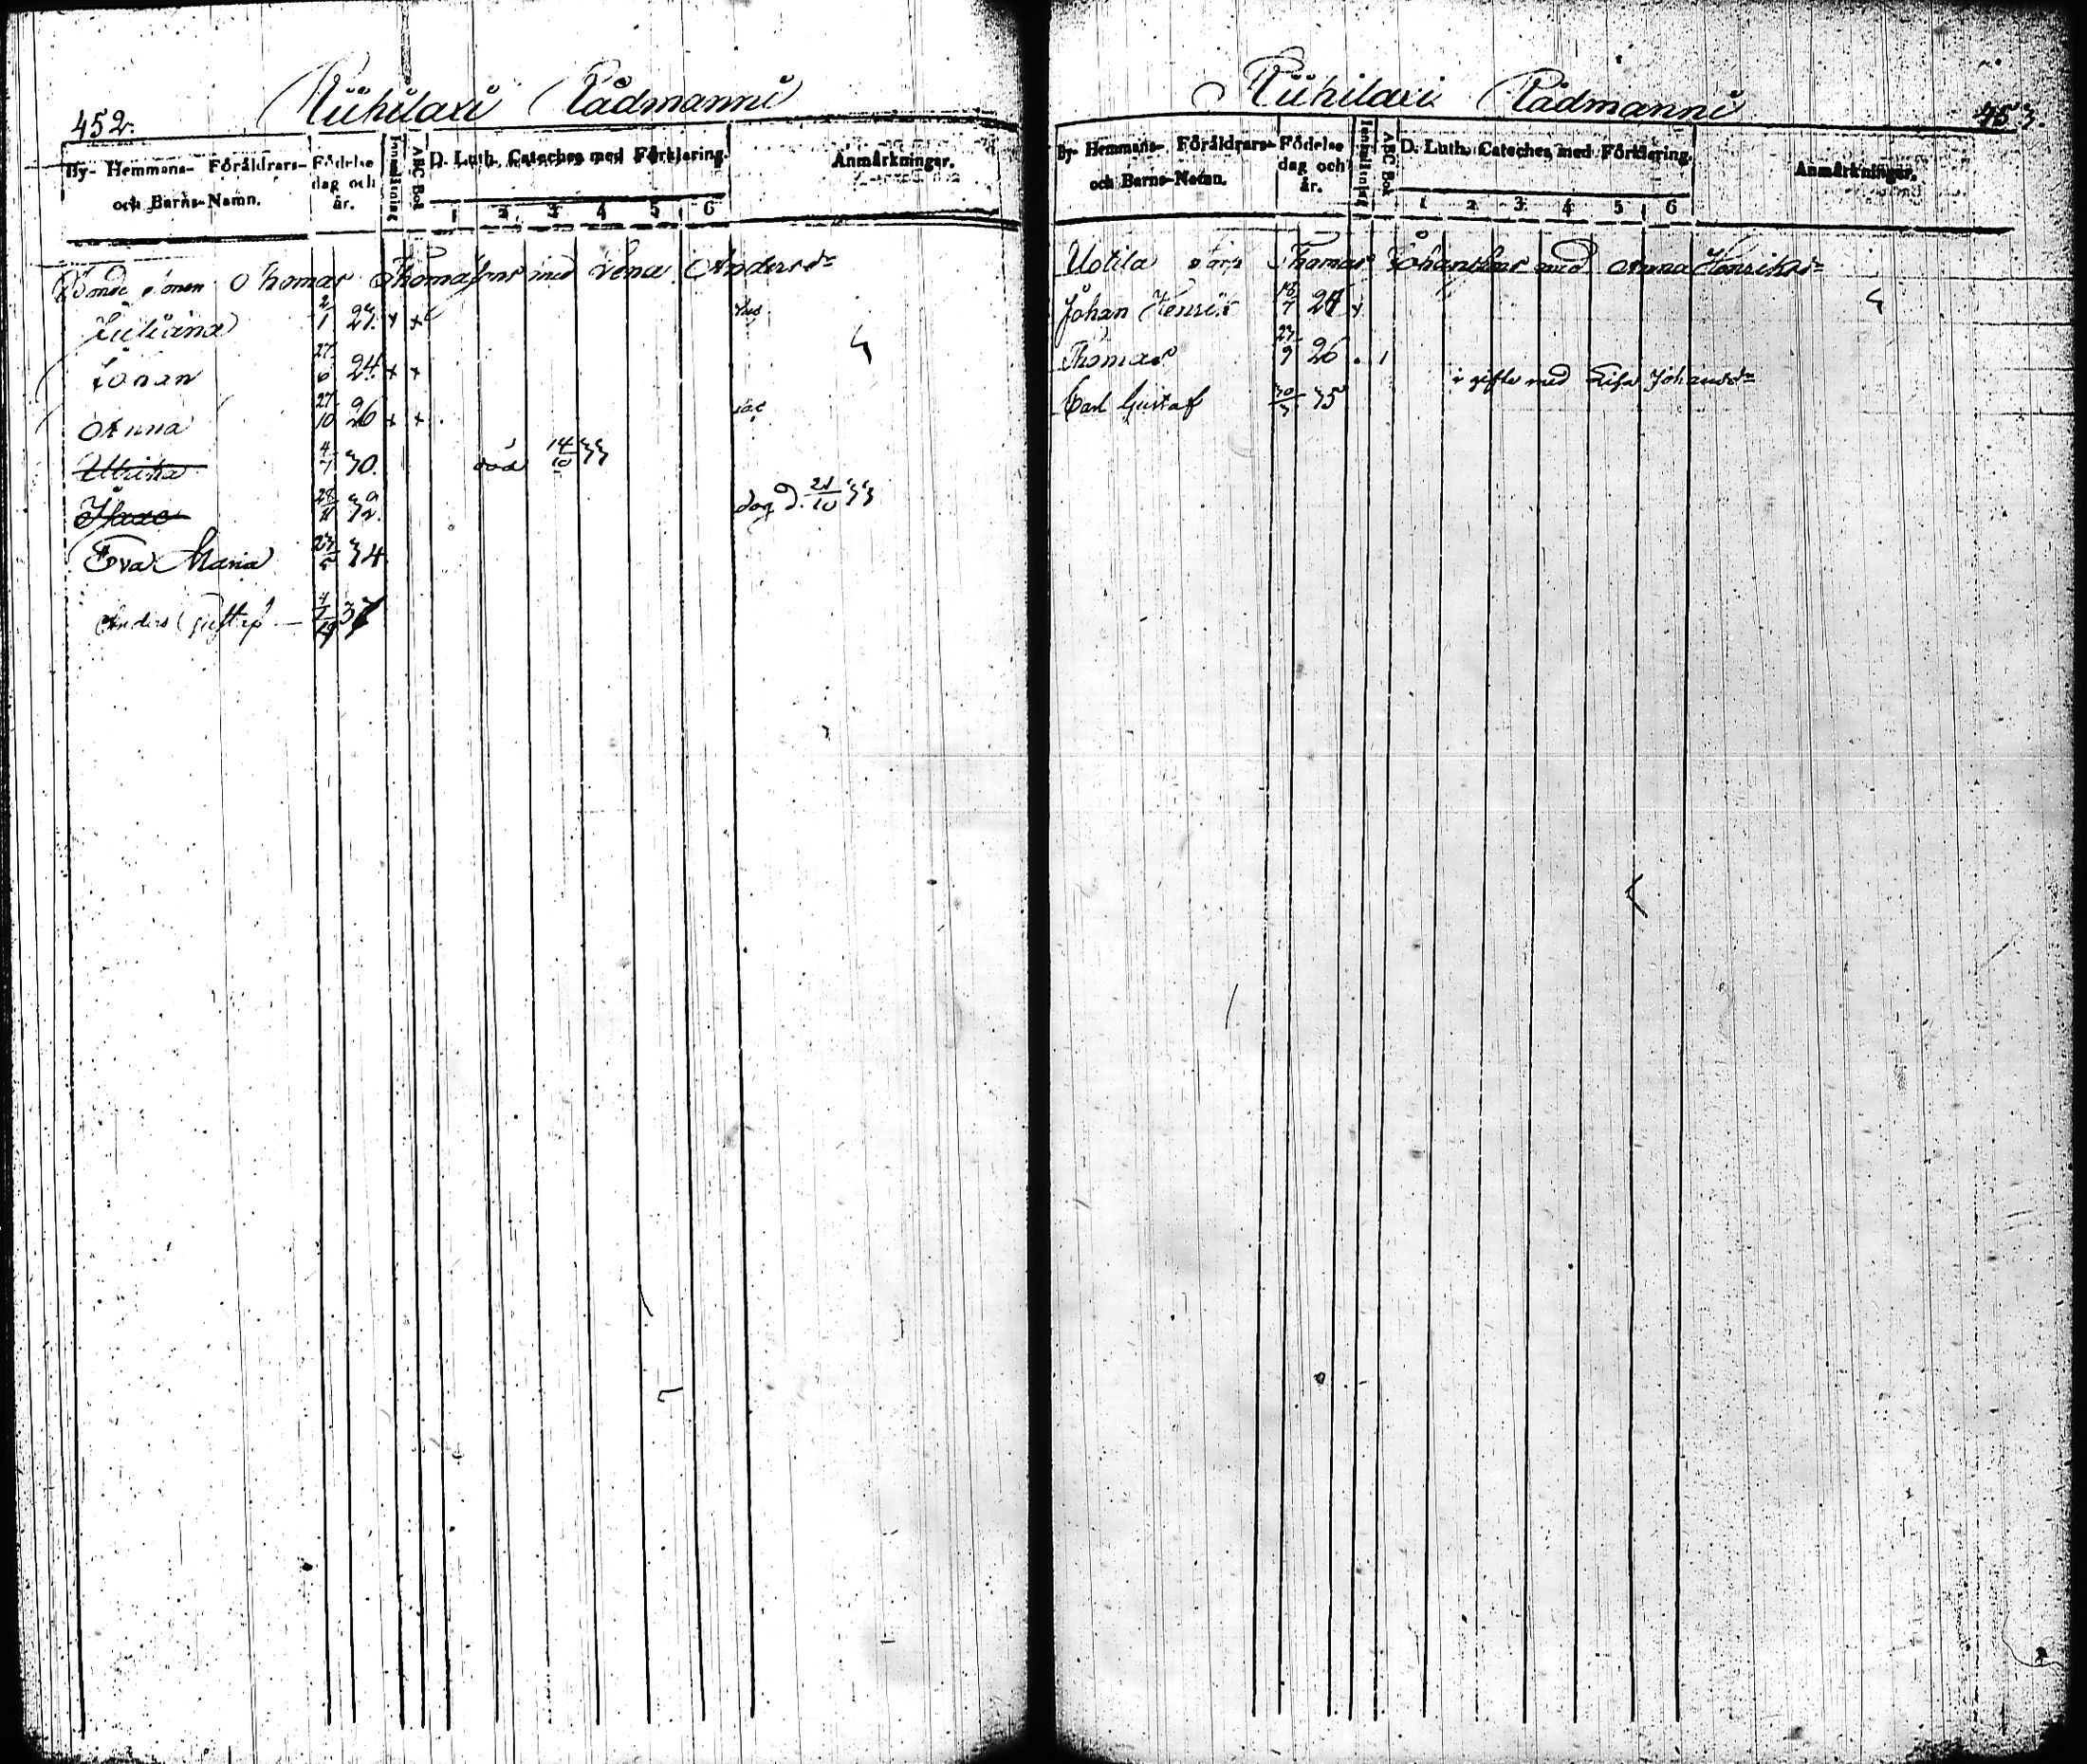 452.
Riihilaxi Rådmanni
By- Hemmans- Föräldrars- och Barns-Namn.
Födelse dag och år.
Innanläsning
ABC Bok
D. Luth. Cateches med Förklaring.
1 2 3 4 5 6
Anmärkningar.
Bonde sonen Thomas Thomasons med Lena Anders dr
Juliana 2/1 21. x x
Johan 27/6 24. x x
Anna 27/10 26 x x
Ulrika 4/1 30. död 14/10 33
Isaac 28/11 32. dog d. 21/10 33
Eva Maria 23/5 34.
Anders Gustaf 37
453.
Riihilaxi Rådmanni
By- Hemmans- Föräldrars- och Barns-Namn.
Födelse dag och år.
Innanläsning
ABC Bok
D. Luth. Cateches med Förklaring.
1 2 3 4 5 6
Anmärkningar.
Uotila Torp Thomas Johansons med Anna Henriksdr
Johan Henrik 18/7 24
Thomas 27/9 26
i gifte med Lisa Johansdr
Carl Gustaf 30/3 35